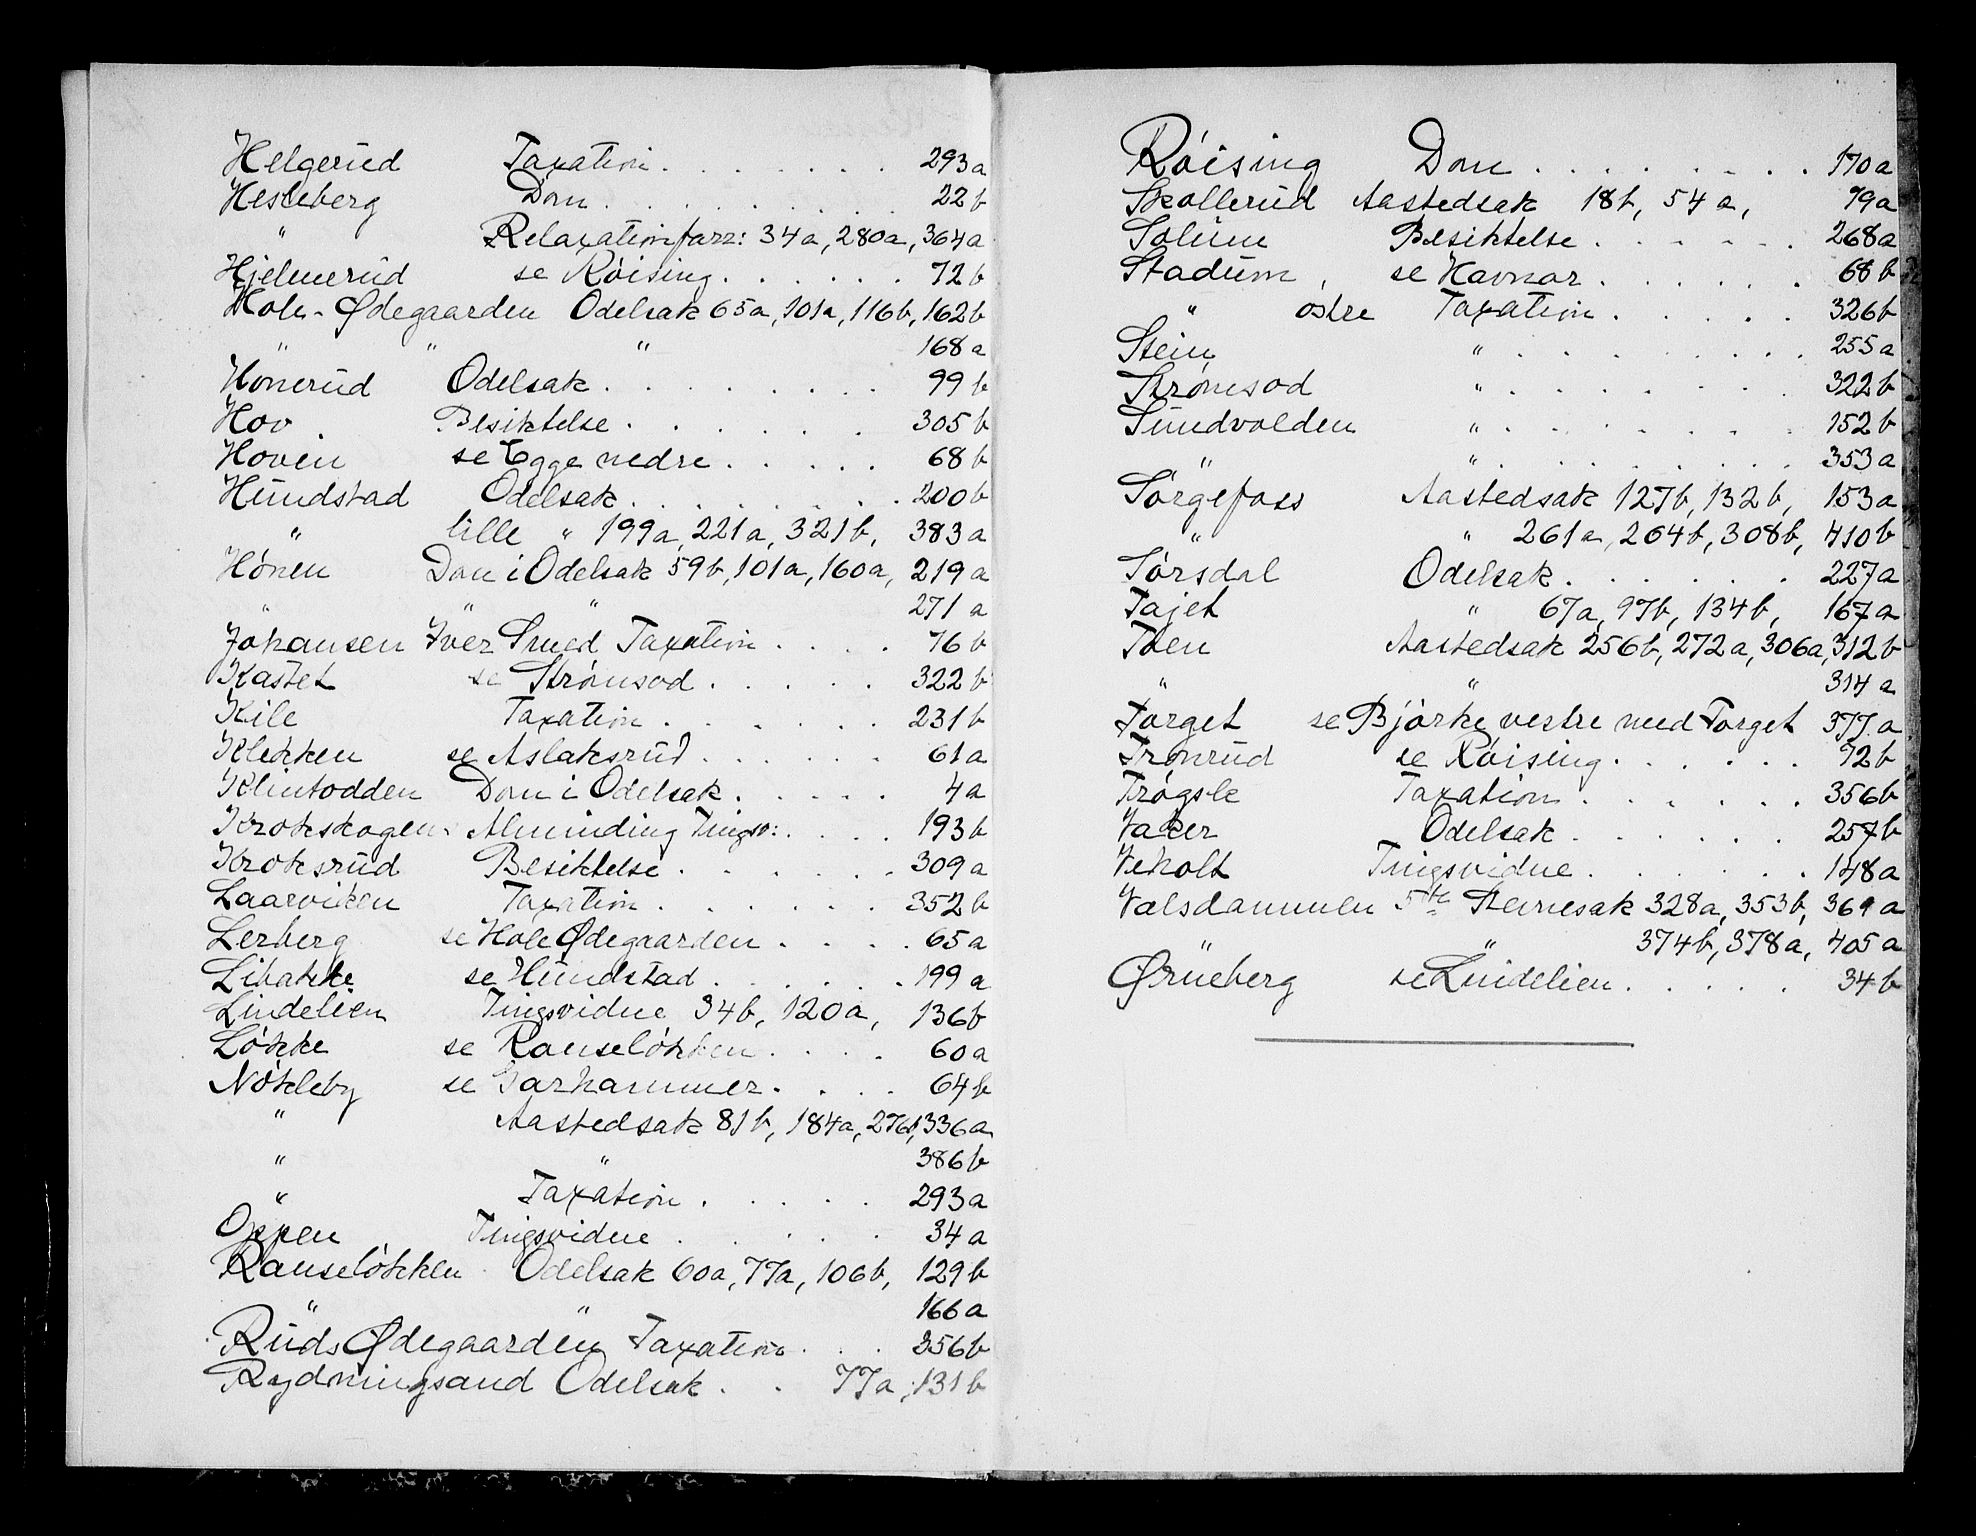 Helgerud Taxation . . . . . . . 293a
Hesleberg Dom . . . . . . . . 22b
" Relaxationfarr: 34a, 280a, 364a
Hjelmerud se Røising . . . . . . 72b
Hole-Ødegaarden Odelsak 65a, 101a, 116b, 162b
" " " 168a
Honerud Odelsak . . . . . . . 99b
Hov Besiktelse . . . . . . 305b
Hoven se Egge nedre . . . . . 68b
Hundstad Odelsak . . . . . . . . 200b
" lille " 199a, 221a, 321b, 383a
Hønen Dom i Odelsak 59b, 101a, 160a, 219a
" " " 271a
Johansen Iver Smed Taxation . . . . 76b
Kastet se Strømsod . . . . . 322b
Kile Taxation . . . . . . 231b
Klekken se Aslaksrud . . . . . . 61a
Klintodden Dom i Odelsak . . . . . 4a
Krokskogen Alminding Tingsv: . . . . 193b
Kroksrud Besiktelse . . . . . . 309a
Laarviken Taxation . . . . . . 352b
Lerberg se Hole Ødegaarden . . . . 65a
Libakke se Hundstad . . . . . . 199a
Lindelien Tingsvidne 34b, 120a, 136b
Løkke se Ranseløkken . . . . 60a
Nøkleby se Garhammer . . . . 64b
" Aastedsak 81b, 184a, 276b, 336a
" " 386b
" Taxation . . . . . 293a
Oppen Tingsvidne . . . . . 34a
Ranseløkken Odelsak 60a, 77a, 106b, 129b
" " 166a
Ruds Ødegaarden Taxation . . . 356b
Rydningsand Odelsak . . 77a, 131b
Røising Dom . . . . . . . . 170a
Skollerud Aastedsak 18b, 54a, 79a
Solum Besiktelse . . . . . . 268a
Stadum, se Havnor . . . . . . 68b
" østre Taxation . . . . . 326b
Stein " . . . . . . . . 255a
Strømsod " . . . . . . . 322b
Sundvolden " . . . . . . . 152b
" " . . . . . . . . 353a
Sørgefoss Aastedsak 127b, 132b, 153a
" " 261a, 264b, 308b, 410b
Sørsdal Odelsak . . . . . . 227a
Tajet " 67a, 97b, 134b, 167a
Toen Aastedsak 256b, 272a, 306a, 312b
" " 314a
Torget se Bjørke vestre med Torget 377a
Tronrud se Røising . . . . . . 72b
Trøgsle Taxation . . . . . . 356b
Vaker Odelsak . . . . . . 257b
Veholt Tingsvidne . . . . . . 148a
Vælsdammen 5te Stevnesak 328a, 353b, 369a
" " 374b, 378a, 405a
Ørneberg se Lindelien . . . . . 34b